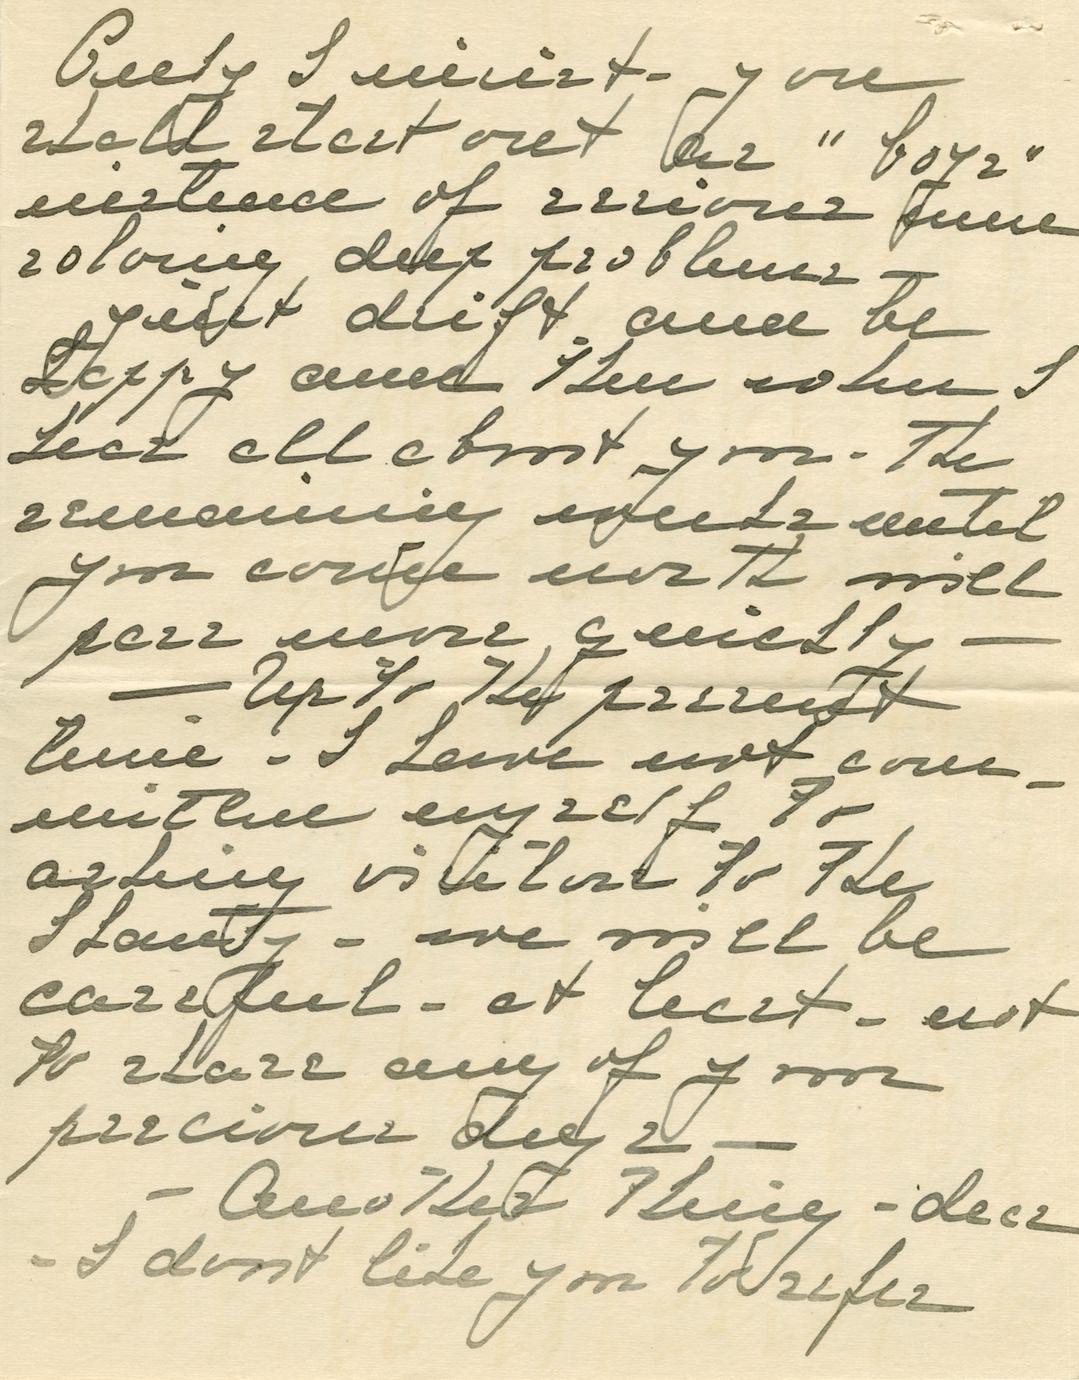 Only I insist - you
shall start out as "boys"
instead of serious June
solving deep problems -
just drift and be
happy and then when I
hear all about you - the
remaining weeks until
you come north will
pass more quickly —
— Up to the present
time - I have not com-
mitted myself to
asking visitors to the
Shanty - we will be
careful - at least - not
to share any of your
precious days —
- Another thing - dear
- I don't like you to refer